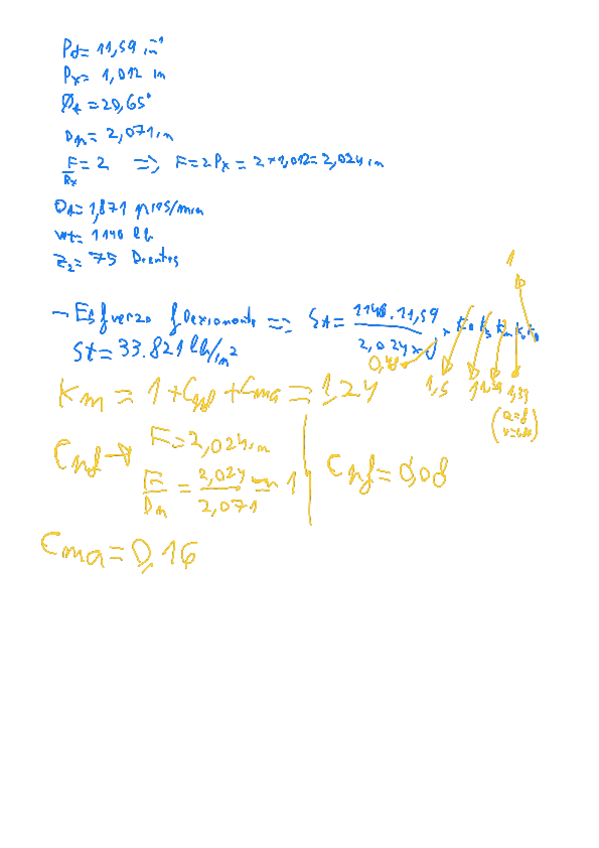 Pd= 11,59 in⁻¹
Px= 1,012 in
Øt = 20,65°
Dp= 2,071 in
F/Px = 2 => F=2Px = 2*1,012= 2,024 in
1,871 pies/min
Wt= 1148 lb
Z₂= 75 Dientes
1
- Esfuerzo flexionante => St= 1148.11,59 / 2,024 x J x Ko Ks Km
St= 33.821 lb/in²
0,48 1,5 1
Km = 1 + Cpf + Cma = 1,24
Cpf → F= 2,024 in
F/Dp = 2,024 / 2,071 = 1
Cpf = 0,08
Cma = 0,16